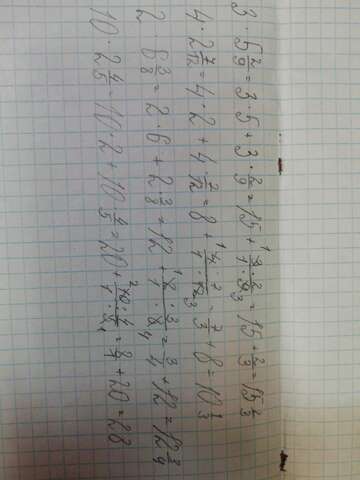 3 · 5 2/9 = 3 · 5 + 3 · 2/9 = 15 + (3 · 2)/(1 · 9) = 15 + 2/3 = 15 2/3
4 · 2 7/12 = 4 · 2 + 4 · 7/12 = 8 + (4 · 7)/(1 · 12) = 7/3 + 8 = 10 1/3
2 · 6 3/8 = 2 · 6 + 2 · 3/8 = 12 + (2 · 3)/(1 · 8) = 3/4 + 12 = 12 3/4
10 · 2 4/5 = 10 · 2 + 10 · 4/5 = 20 + (10 · 4)/(1 · 5) = 8/1 + 20 = 28